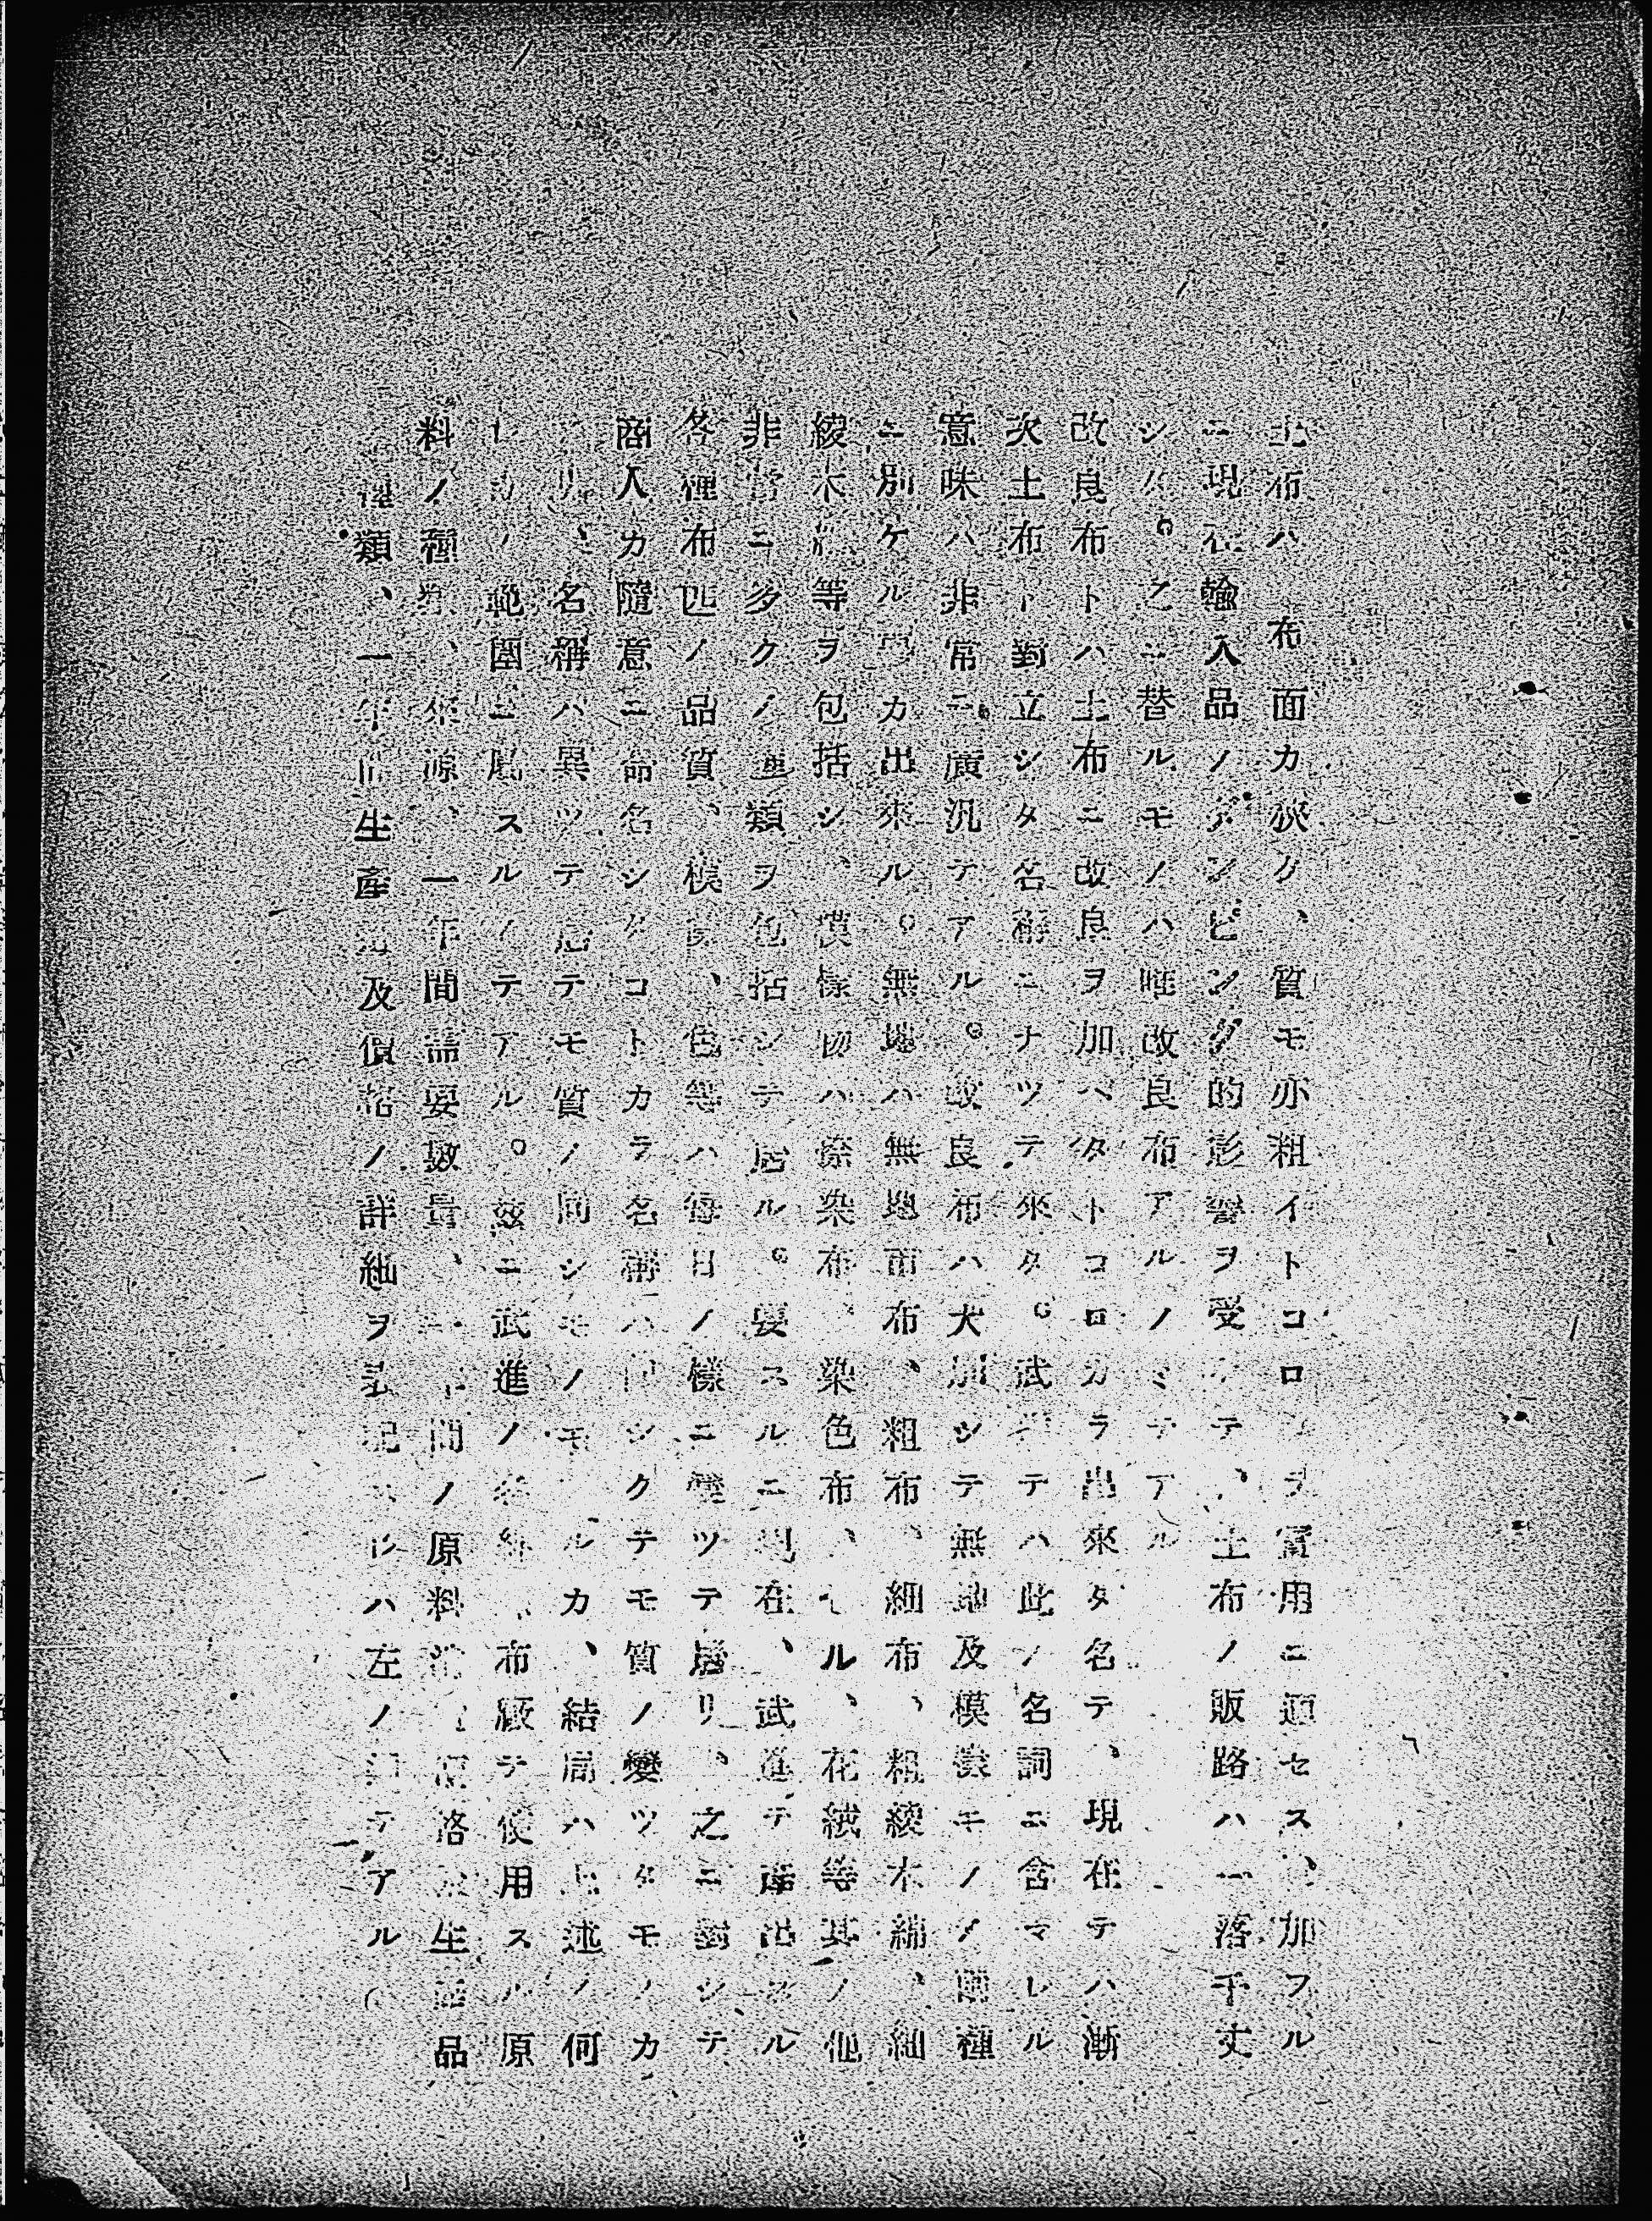 土布ハ、布面カ狹ク、質モ亦粗イトコロカラ實用ニ適セス、加フル
ニ現在輸入品ノダンピング的影響ヲ受ケテ、土布ノ販路ハ一落千丈
シタ。之ニ替ルモノハ唯改良布アルノミテアル
改良布トハ土布ニ改良ヲ加ヘタトコロカラ出來タ名テ、現在テハ漸
次土布ト對立シタ名稱ニナツテ來タ。武進テハ此ノ名詞ニ含マレル
意味ハ非常ニ廣汎テアル。改良布ハ大別シテ無地及模樣モノノ兩種
ニ別ケル事カ出來ル。無地ハ無地市布、粗布、細布、粗綾木綿、細
綾木綿等ヲ包括シ、模樣物ハ捺染布、染色布、ネル、花絨等其ノ他
非常ニ多クノ種類ヲ包括シテ居ル。要スルニ現在、武進テ產出スル
各種布匹ノ品質、模樣、色等ハ每日ノ樣ニ變ツテ居リ、之ニ對シテ
商人カ隨意ニ命名シタコトカラ名稱ハ同シクテモ質ノ變ツタモノカ
アリ、名稱ハ異ツテ居テモ質ノ同シモノモアルカ、結局ハ上述ノ何
レカノ範圍ニ屬スルノテアル。茲ニ武進ノ各 布廠テ使用スル原
料ノ種類、來源、一年間需要數量、一年間ノ原料 價格 生產品
種類、一年間生產 及價格ノ詳細ヲ表記スレハ左ノ如テアル